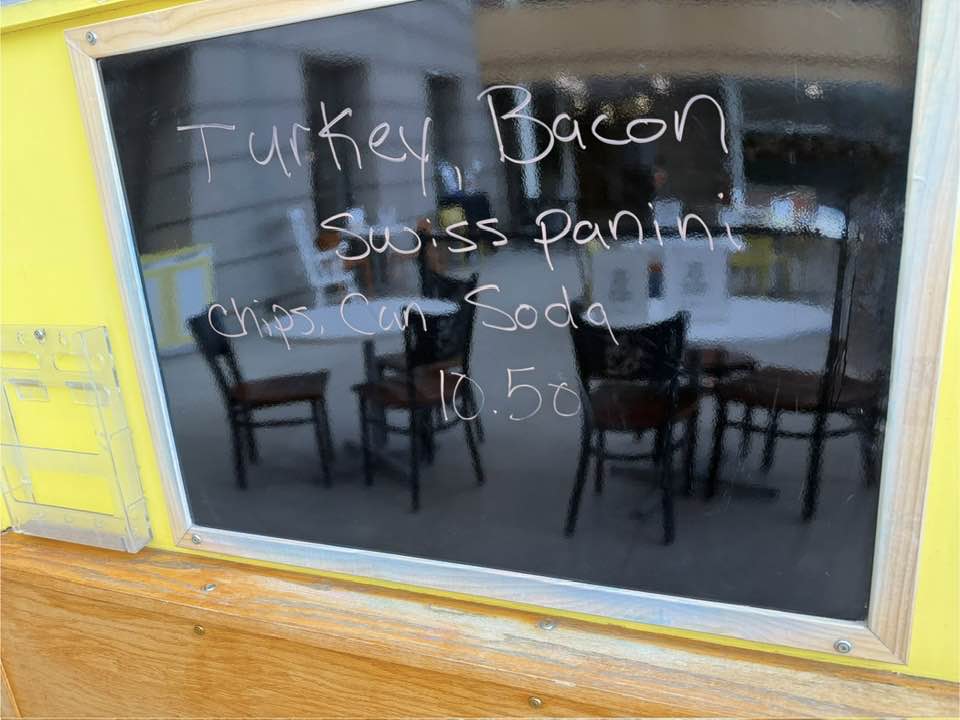 Turkey, Bacon
Swiss panini
Chips, Can Soda
10.50